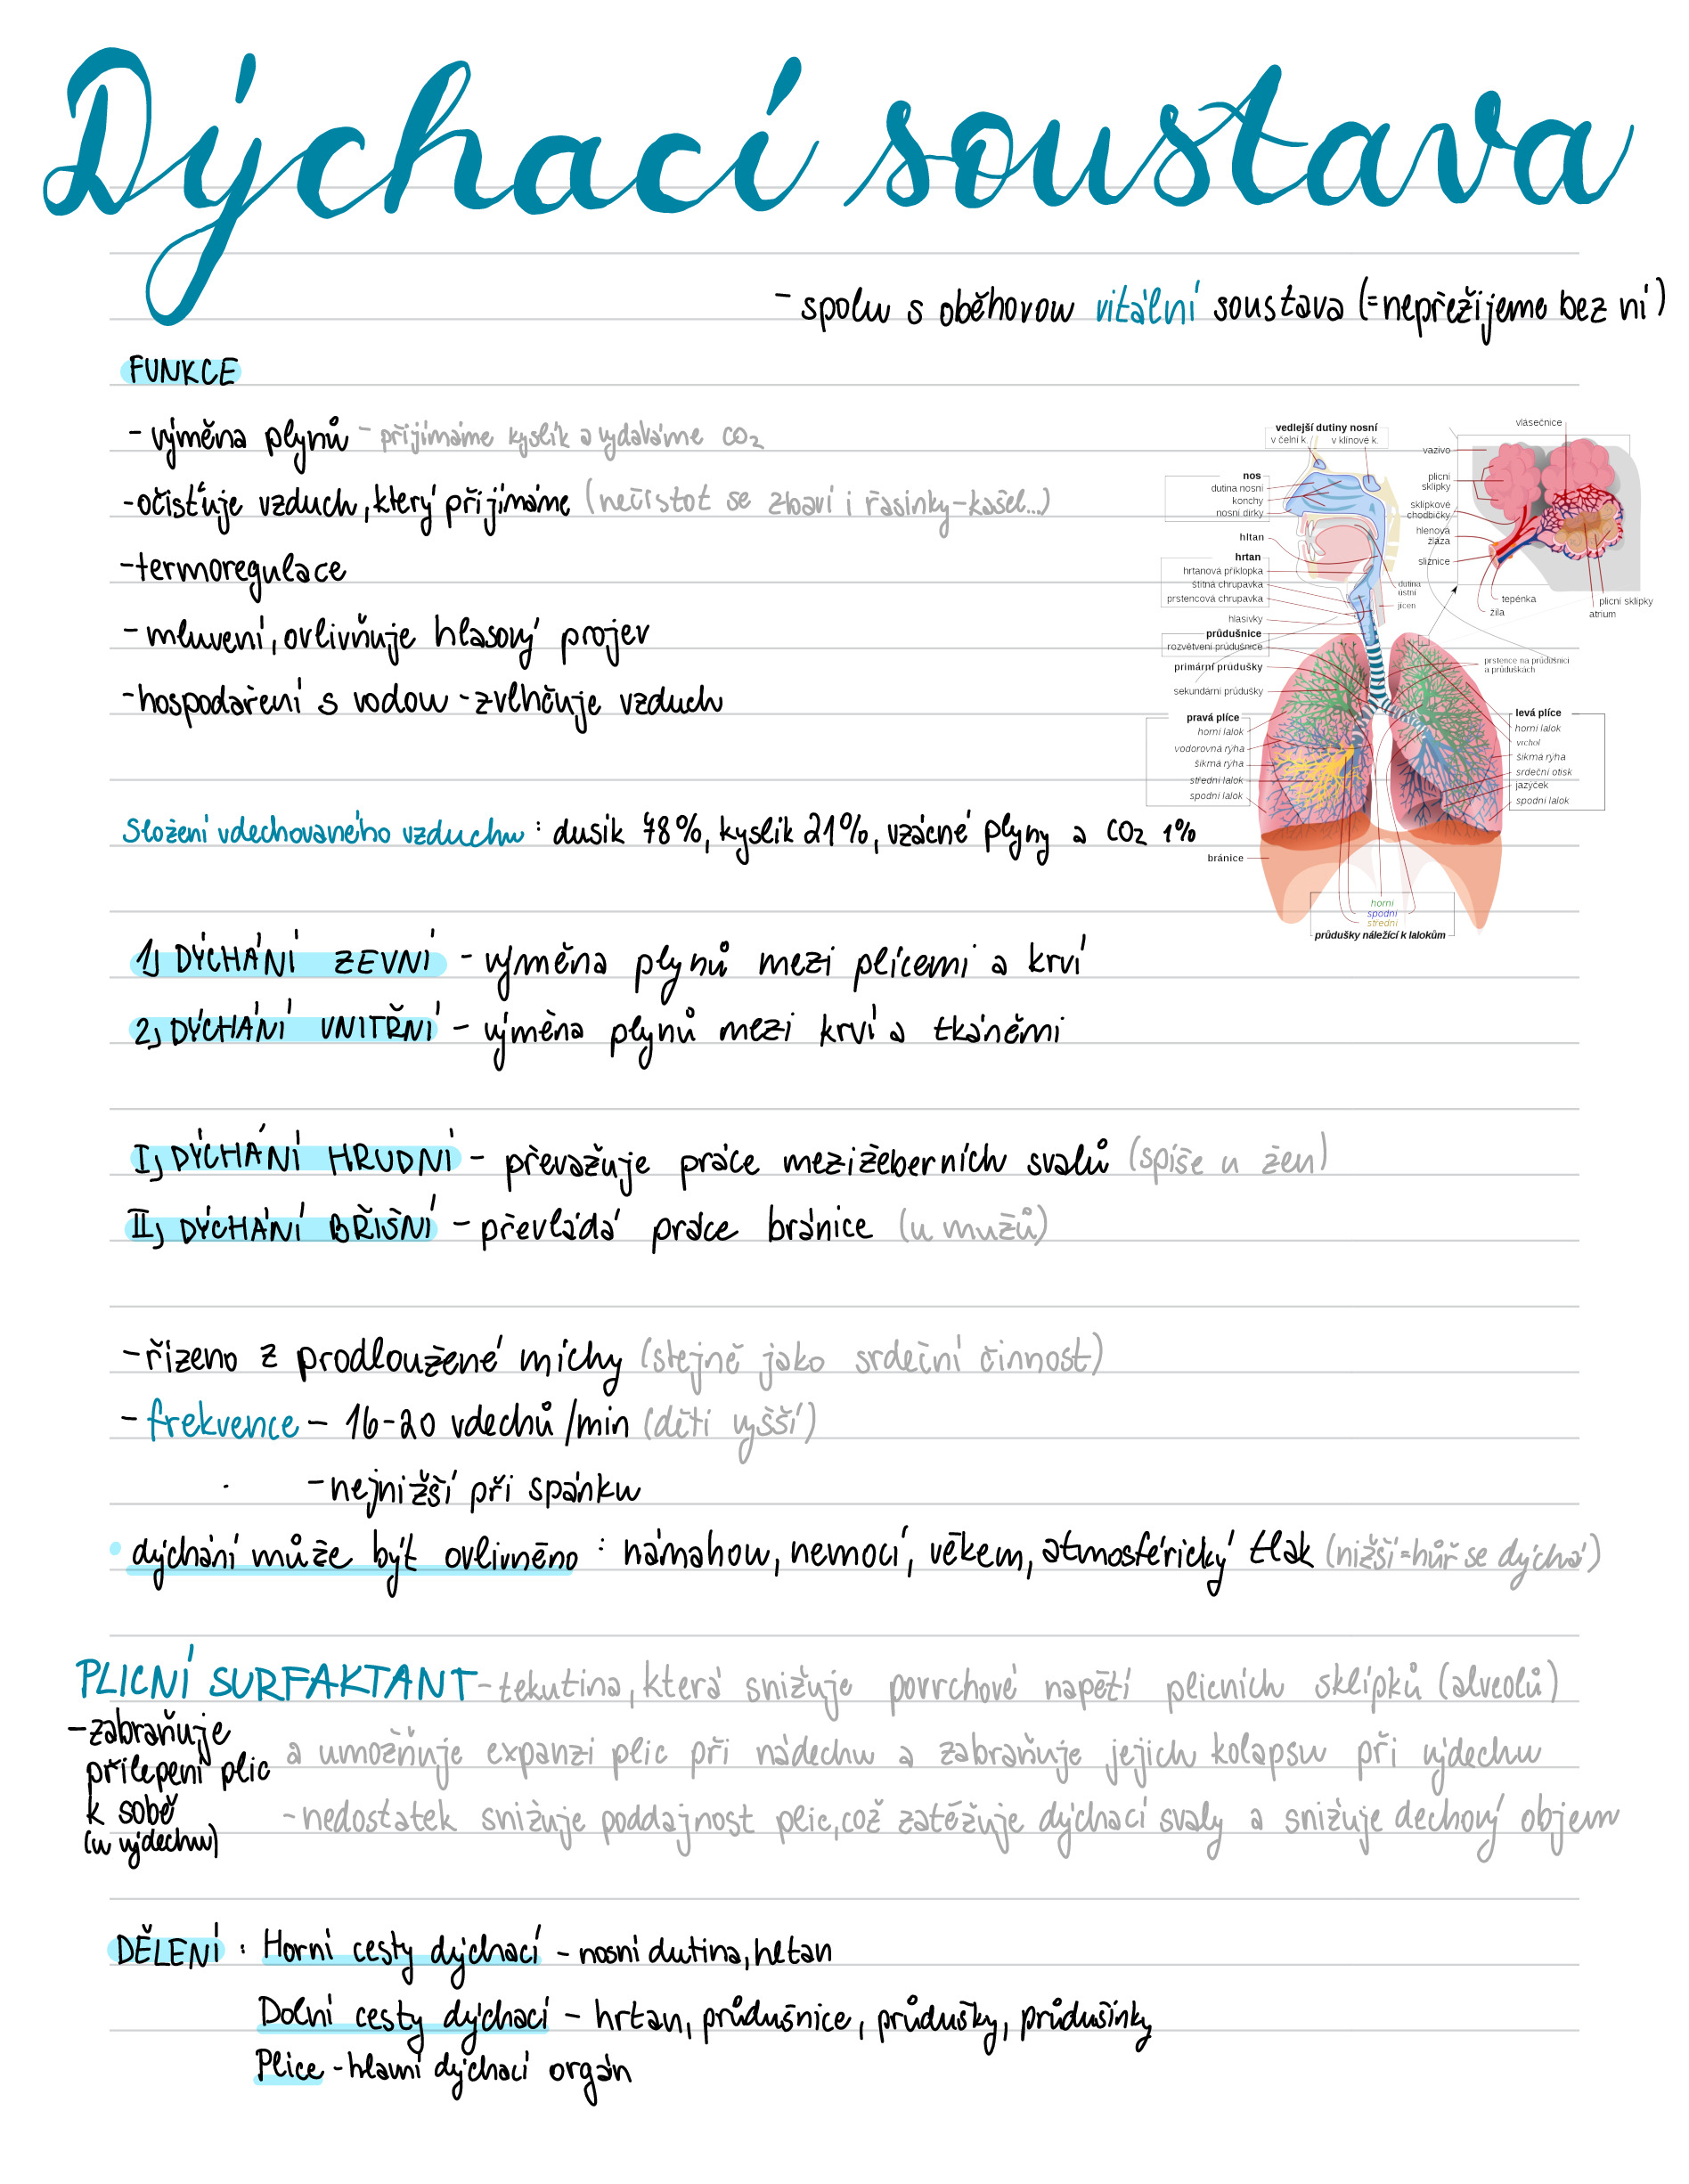 Dýchací soustava
- spolu s oběhovou vitální soustava (=nepřežijeme bez ní)
FUNKCE
- výměna plynů - přijímáme kyslík a vydáváme CO₂
- očisťuje vzduch, který přijímáme (nečistot se zbaví i řasinky-kašel...)
- termoregulace
- mluvení, ovlivňuje hlasový projev
- hospodaření s vodou - zvlhčuje vzduch
vedlejší dutiny nosní
v čelní k.
v klínové k.
nos
dutina nosní
konchy
nosní dírky
hltan
hrtan
hrtanová příklopka
štítná chrupavka
prstencová chrupavka
hlasivky
průdušnice
rozvětvení průdušnice
primární průdušky
sekundární průdušky
pravá plíce
horní lalok
vodorovná rýha
šikmá rýha
střední lalok
spodní lalok
bránice
vlásečnice
vazivo
plicní
sklípky
sklípkové
chodbičky
hlenová
žláza
sliznice
tepénka
žíla
plicní sklípky
atrium
dutina
ústní
jícen
prstence na průdušnici
a průduškách
levá plíce
horní lalok
vrchol
šikmá rýha
srdeční otisk
jazýček
spodní lalok
horní
spodní
střední
průdušky náležící k lalokům
Složení vdechovaného vzduchu: dusík 78%, kyslík 21%, vzácné plyny a CO₂ 1%
1) DÝCHÁNÍ ZEVNÍ - výměna plynů mezi plícemi a krví
2) DÝCHÁNÍ VNITŘNÍ - výměna plynů mezi krví a tkáněmi
I) DÝCHÁNÍ HRUDNÍ - převažuje práce mezižeberních svalů (spíše u žen)
II) DÝCHÁNÍ BŘIŠNÍ - převládá práce bránice (u mužů)
- řízeno z prodloužené míchy (stejně jako srdeční činnost)
- frekvence - 16-20 vdechů/min (děti vyšší)
- nejnižší při spánku
• dýchání může být ovlivněno: námahou, nemocí, věkem, atmosférický tlak (nižší=hůř se dýchá)
PLICNÍ SURFAKTANT - tekutina, která snižuje povrchové napětí plicních sklípků (alveolů)
a umožňuje expanzi plic při nádechu a zabraňuje jejich kolapsu při výdechu
- nedostatek snižuje poddajnost plic, což zatěžuje dýchací svaly a snižuje dechový objem
- zabraňuje
přilepení plic
k sobě
(u výdechu)
DĚLENÍ: Horní cesty dýchací - nosní dutina, hltan
Dolní cesty dýchací - hrtan, průdušnice, průdušky, průdušinky
Plíce - hlavní dýchací orgán